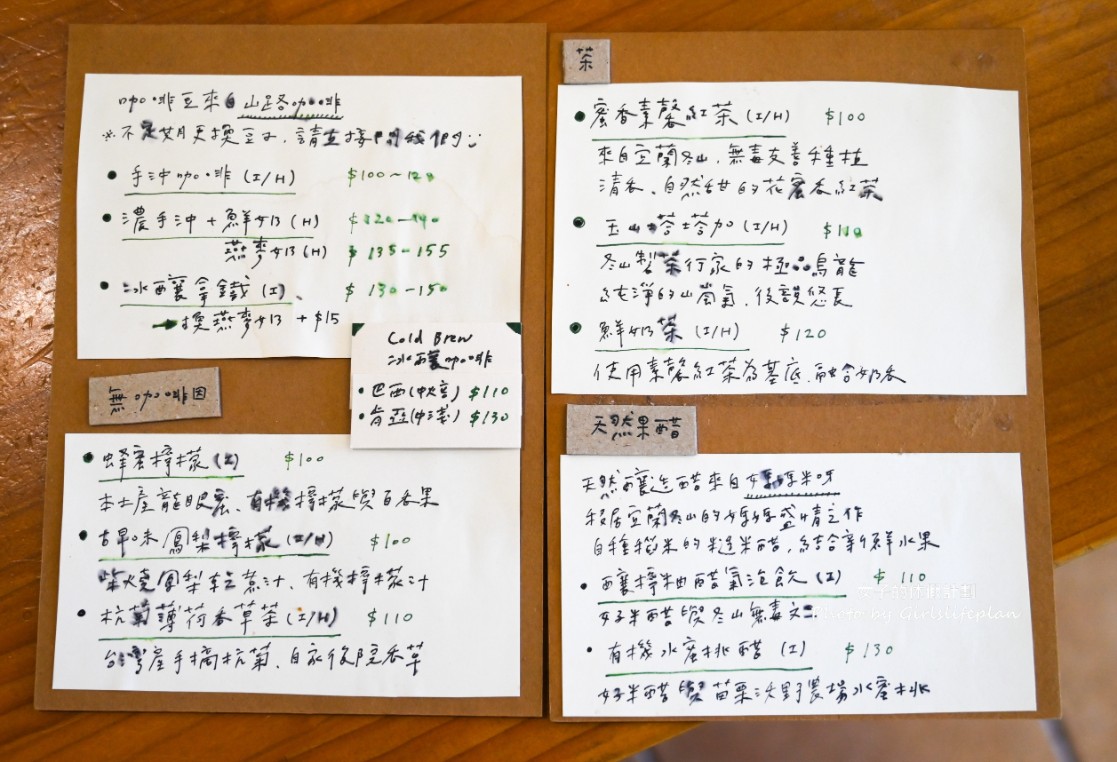 咖啡豆來自山路咖啡
※不定期更換豆子，請直接
手沖咖啡 (I/H) $100~120
濃手沖+鮮奶 (H) $120-140
燕麥奶 (H) $135-155
冰釀拿鐵 (I) $130-150
→換燕麥奶 +$15
Cold Brew
冰釀咖啡
巴西(中焙) $110
肯亞(中淺) $130
無咖啡因
蜂蜜檸檬 (I) $100
本土產龍眼蜜、有機檸檬與百香果
古早味鳳梨檸檬 (I/H) $100
柴燒鳳梨乾蒸汁、有機檸檬汁
杭菊薄荷香草茶 (I/H) $110
台灣產手摘杭菊、自家後院香草
茶
蜜香素馨紅茶 (I/H) $100
來自宜蘭冬山，無毒友善種植
清香、自然甜的花蜜香紅茶
玉山塔塔加 (I/H) $110
冬山製茶行家的極品烏龍
純淨的山嵐氣，後韻悠長
鮮奶茶 (I/H) $120
使用素馨紅茶為基底，融合奶香
天然果醋
天然釀造醋來自好媽米呀
移居宜蘭冬山的媽媽盛情之作
自種稻米的糙米醋，結合新鮮水果
釀檸柚醋氣泡飲 (I) $110
好米醋與冬山無毒文旦
有機水蜜桃醋 (I) $130
好米醋與苗栗沃野農場水蜜桃
Photo by Girlslifeplan